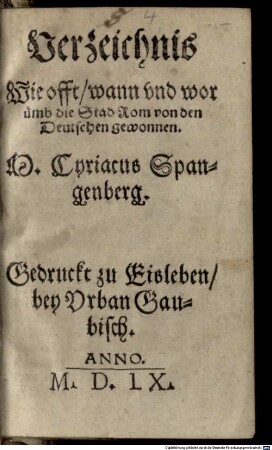 4
Verzeichnis
Wie offt/wann vnd wor
umb die Stad Rom von den
Deutschen gewonnen.
M. Cyriacus Span-
genberg.
Gedruckt zu Eisleben/
bey Vrban Gau-
bisch.
ANNO.
M. D. LX.